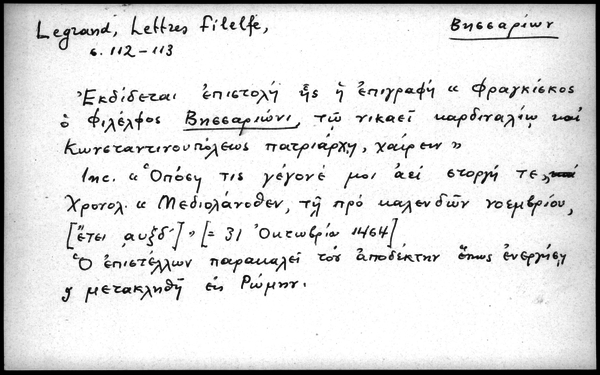 Legrand, Lettres Filelfe,
Βησσαρίων
σ. 112-113
Ἐκδίδεται ἐπιστολὴ ἧς ἡ ἐπιγραφὴ « Φραγκίσκος
ὁ Φιλέλφος Βησσαρίωνι, τῷ νικαεῖ καρδιναλίῳ καὶ
Κωνσταντινουπόλεως πατριάρχῃ, χαίρειν »
Inc. « Ὁπόση τις γέγονέ μοι ἀεὶ στοργή τε »,
Χρονολ. « Μεδιολάνοθεν, τῇ πρὸ καλενδῶν νοεμβρίου,
[ἔτει ͵αυξδʹ] » [= 31 Ὀκτωβρίου 1464]
Ὁ ἐπιστέλλων παρακαλεῖ τὸν ἀποδέκτην ὅπως ἐνεργήσῃ
μετακληθῇ εἰς Ῥώμην.